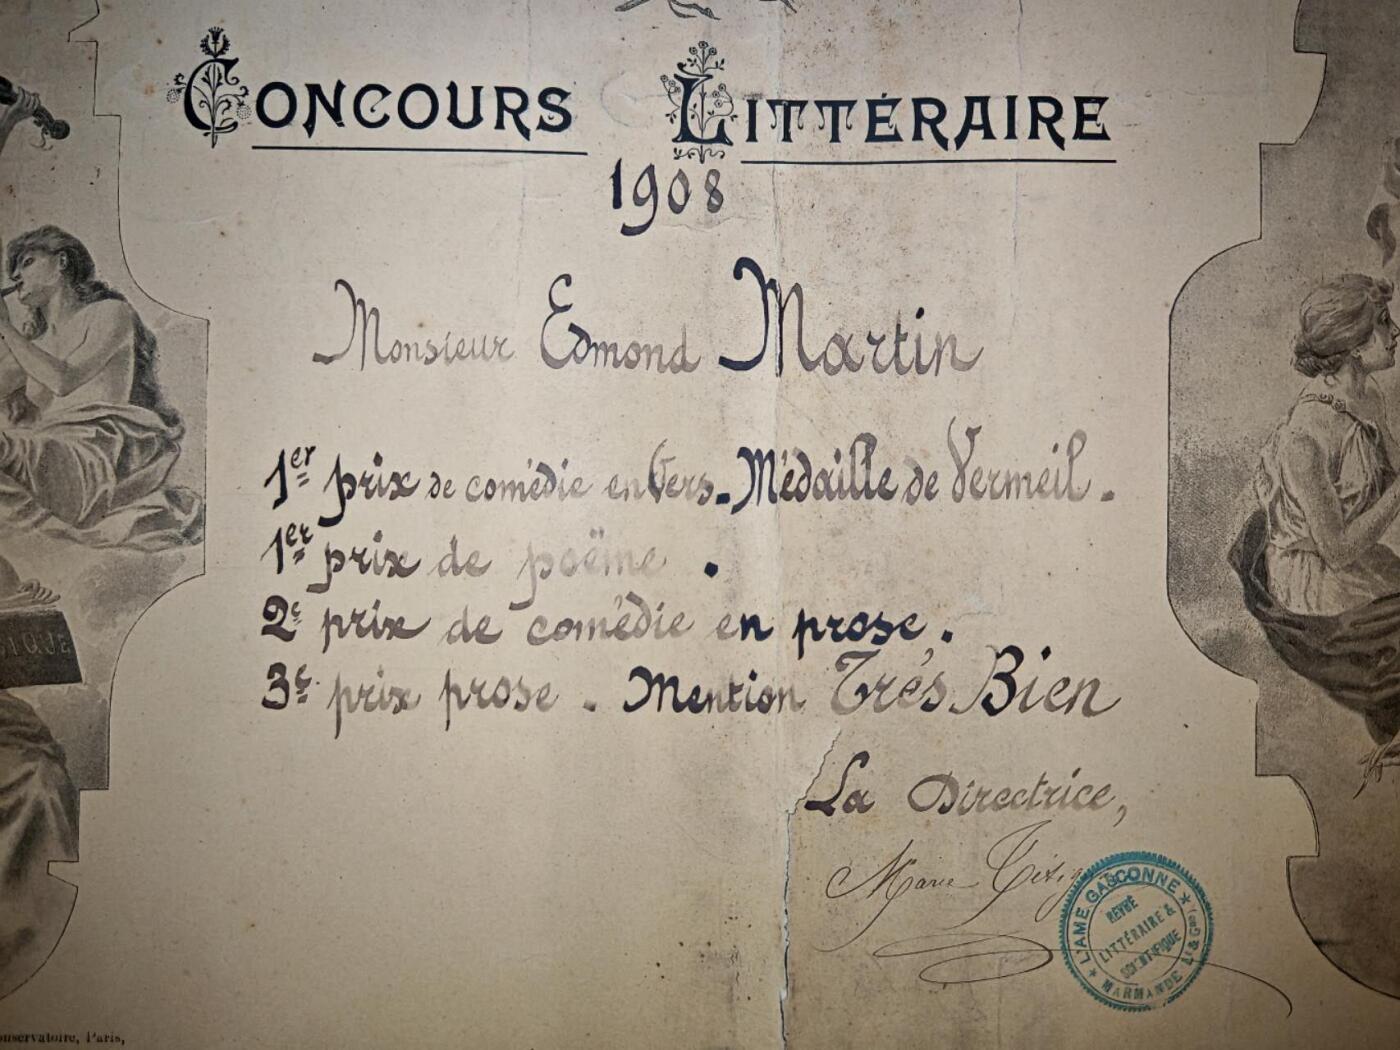 CONCOURS LITTÉRAIRE
1908
Monsieur Edmond Martin
1er prix de comédie en Vers - Médaille de Vermeil -
1er prix de poëme .
2e prix de comédie en prose .
3e prix prose . Mention Très Bien
La Directrice,
Marie
L'AME GASCONNE
REVUE
LITTÉRAIRE &
SCIENTIFIQUE
MARMANDE
onservatoire, Paris,